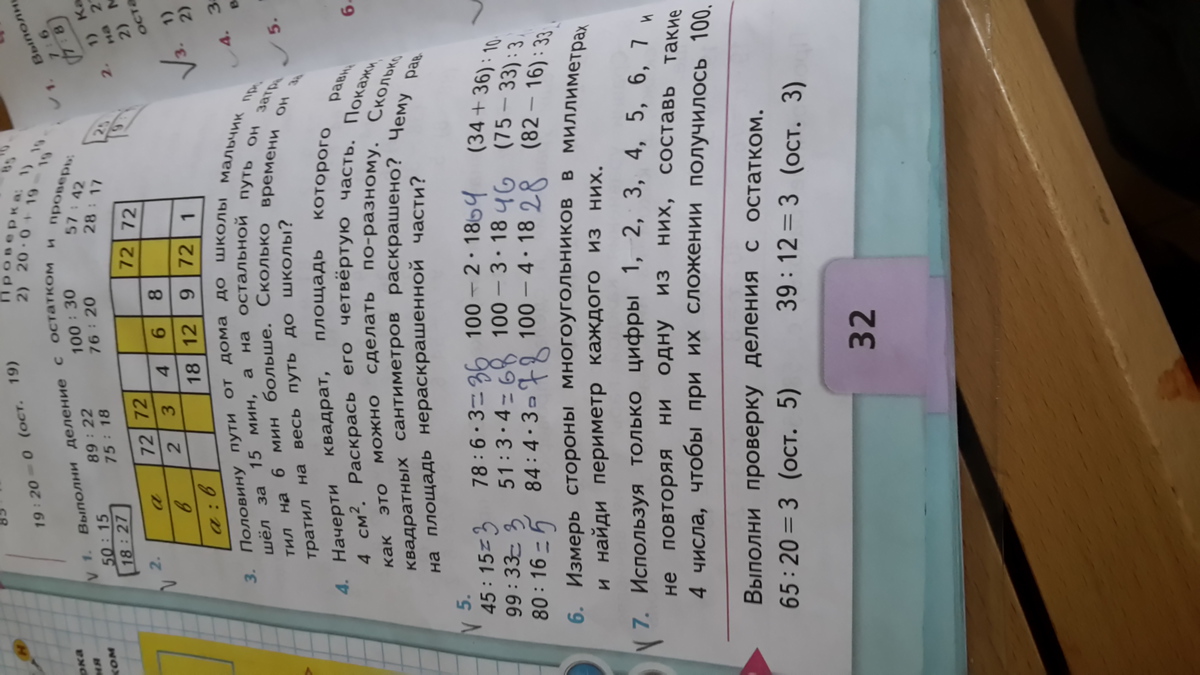 Проверка: 1)
19 : 20 = 0 (ост. 19) 2) 20 · 0 + 19 = 19
1. Выполни деление с остатком и проверь:
50 : 15 89 : 22 100 : 30 57 : 42
18 : 27 75 : 18 76 : 20 28 : 17
2.
а 72 72 72 72
в 2 3 4 6 8
а : в 18 12 9 72 1
3. Половину пути от дома до школы мальчик
шёл за 15 мин, а на остальной путь он
тил на 6 мин больше. Сколько времени он
тратил на весь путь до школы?
4. Начерти квадрат, площадь которого
4 см². Раскрась его четвёртую часть. Покажи,
как это можно сделать по-разному. Сколько
квадратных сантиметров раскрашено? Чему
на площадь нераскрашенной части?
V 5.
45 : 15 = 3 78 : 6 · 3 = 36 100 − 2 · 18 64 (34 + 36) : 10
99 : 33 = 3 51 : 3 · 4 = 68 100 − 3 · 18 46 (75 − 33) : 3
80 : 16 = 5 84 : 4 · 3 = 78 100 − 4 · 18 28 (82 − 16) : 33
6. Измерь стороны многоугольников в миллиметрах
и найди периметр каждого из них.
V 7. Используя только цифры 1, 2, 3, 4, 5, 6, 7 и
не повторяя ни одну из них, составь такие
4 числа, чтобы при их сложении получилось 100.
Выполни проверку деления с остатком.
65 : 20 = 3 (ост. 5) 39 : 12 = 3 (ост. 3)
32